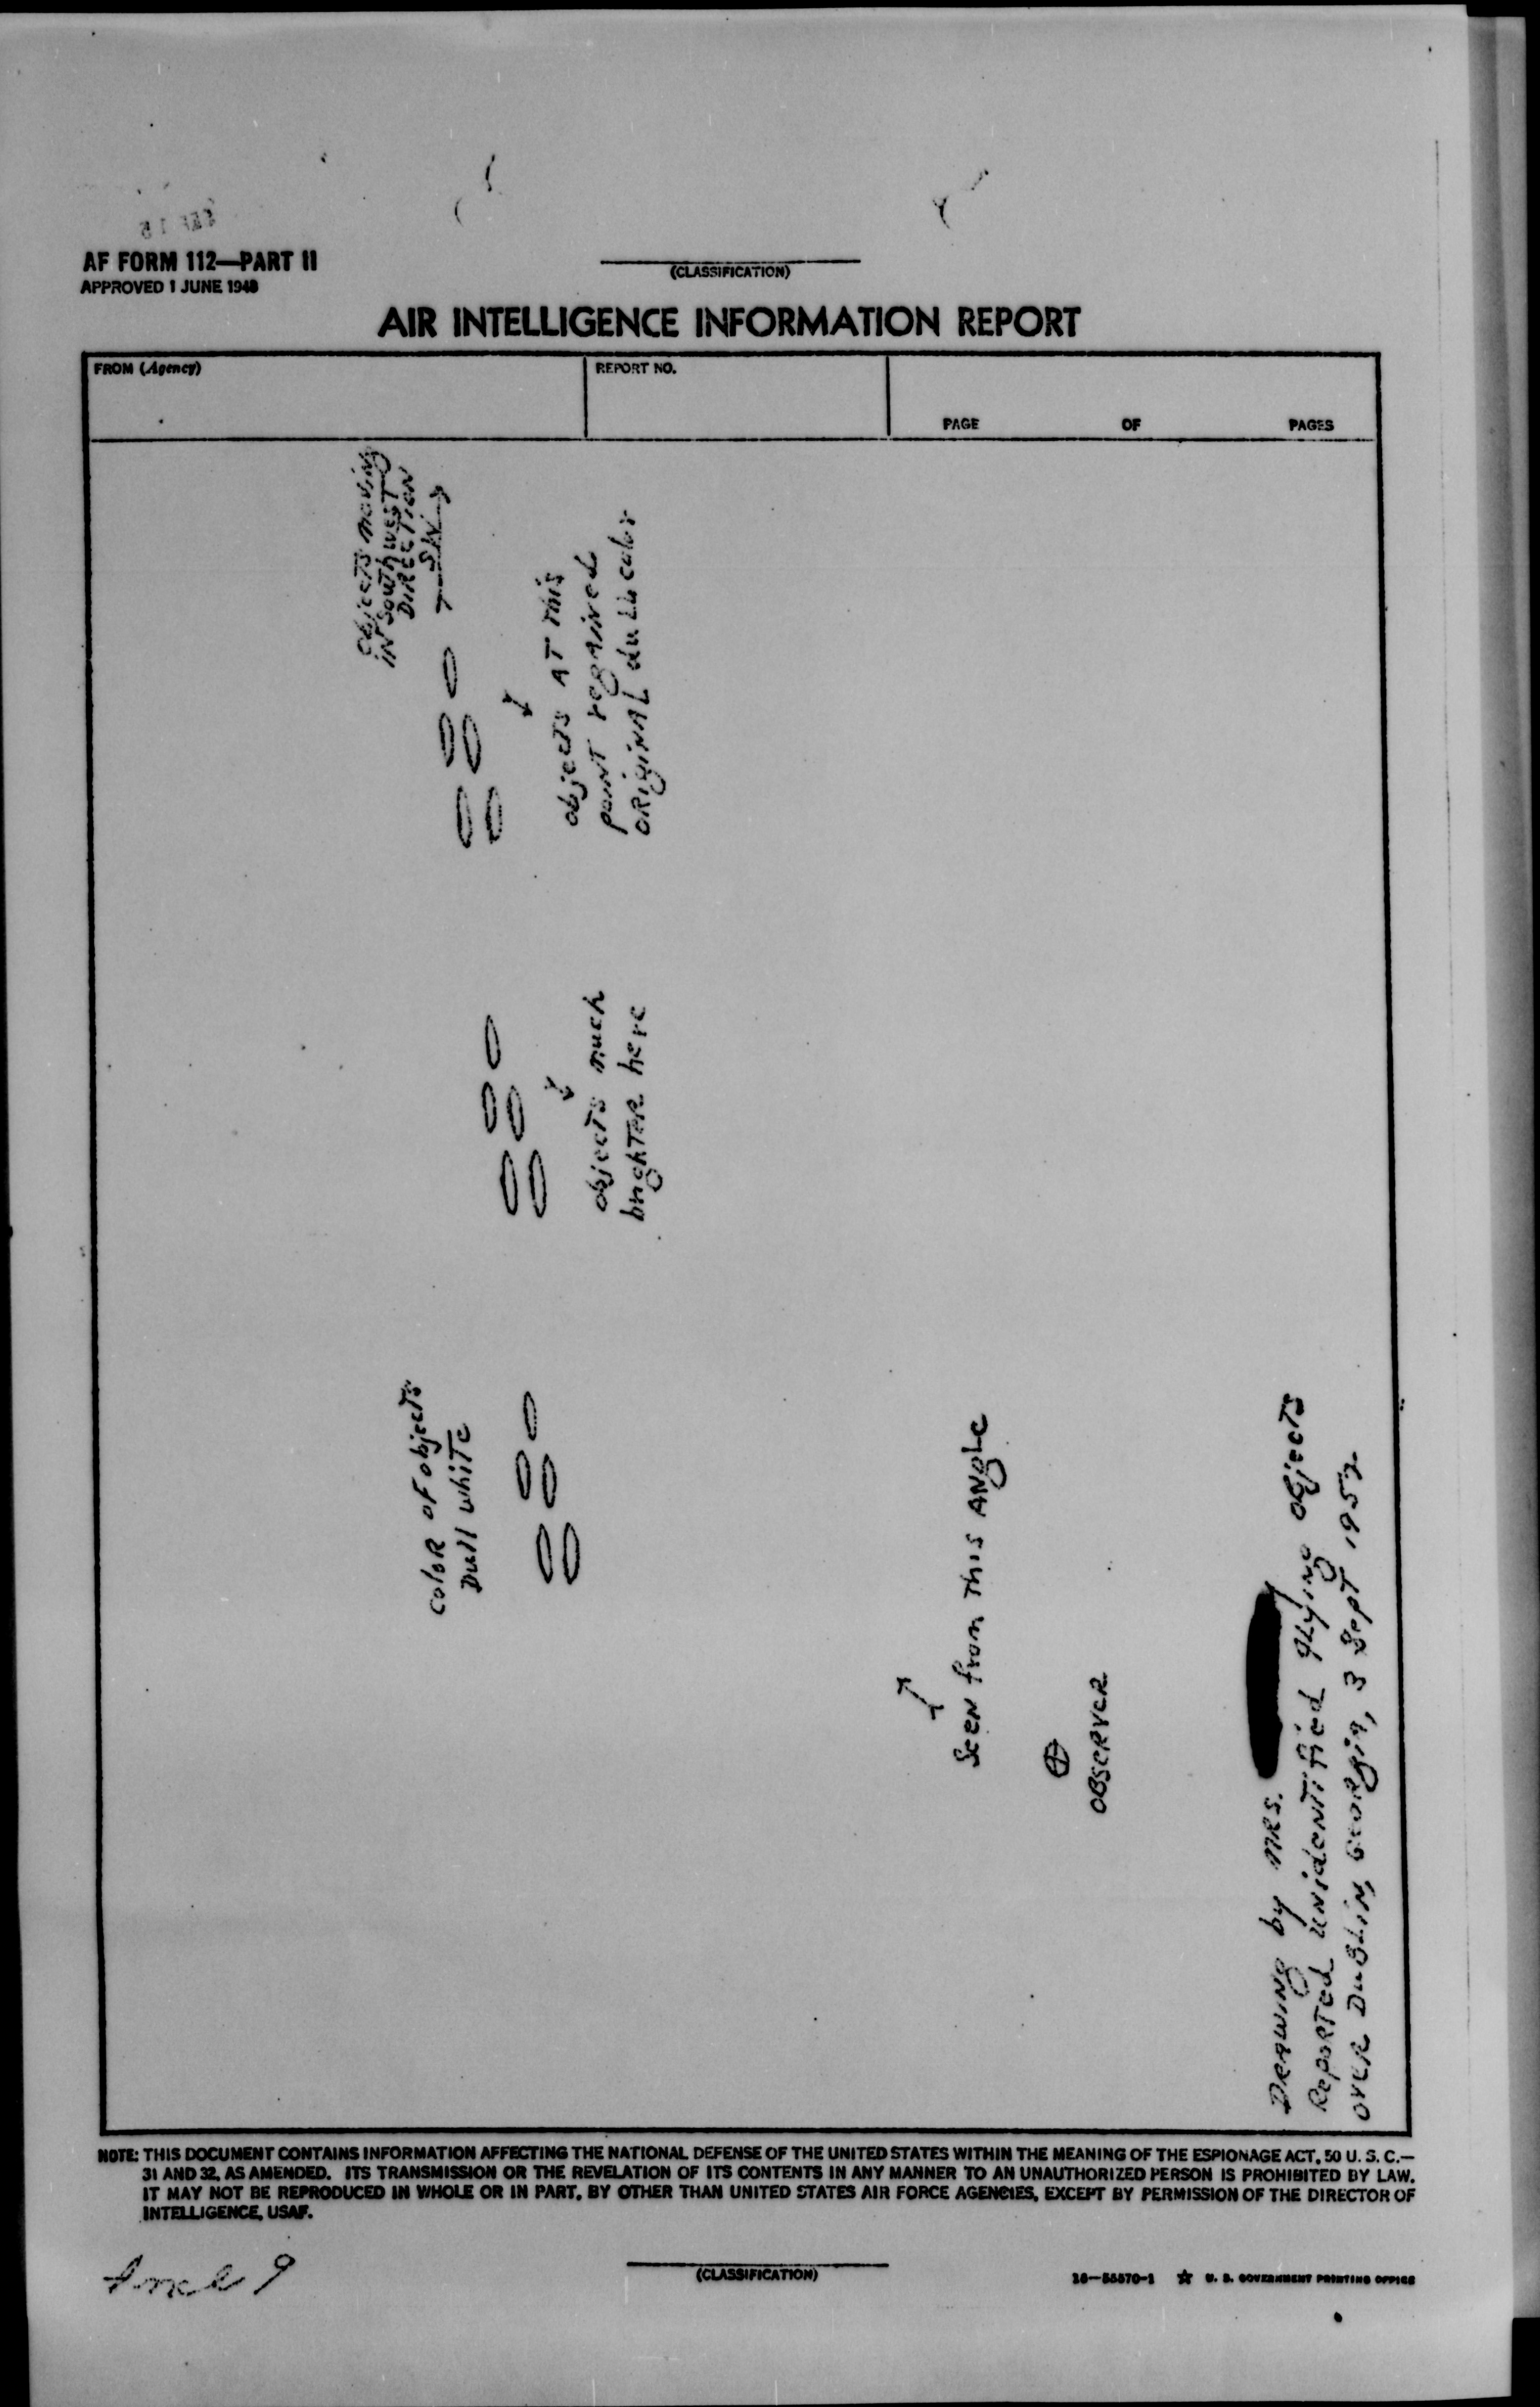 AF FORM 112—PART II
APPROVED 1 JUNE 1948
(CLASSIFICATION)
AIR INTELLIGENCE INFORMATION REPORT
FROM (Agency)
REPORT NO.
PAGE OF PAGES
objects moving
in southwest
DIRECTION
SW
objects AT this
point regained
ORiginAL dull color
objects much
brighter here
color of objects
Dull white
Seen from This Angle
OBSERVER
Drawing by MRS.
Reported unidentified flying objects
over Dublin, Georgia, 3 Sept 1952
NOTE: THIS DOCUMENT CONTAINS INFORMATION AFFECTING THE NATIONAL DEFENSE OF THE UNITED STATES WITHIN THE MEANING OF THE ESPIONAGE ACT, 50 U. S. C.—
31 AND 32, AS AMENDED. ITS TRANSMISSION OR THE REVELATION OF ITS CONTENTS IN ANY MANNER TO AN UNAUTHORIZED PERSON IS PROHIBITED BY LAW.
IT MAY NOT BE REPRODUCED IN WHOLE OR IN PART, BY OTHER THAN UNITED STATES AIR FORCE AGENCIES, EXCEPT BY PERMISSION OF THE DIRECTOR OF
INTELLIGENCE, USAF.
Incl 9
(CLASSIFICATION)
16—55570-1 ☆ U. S. GOVERNMENT PRINTING OFFICE